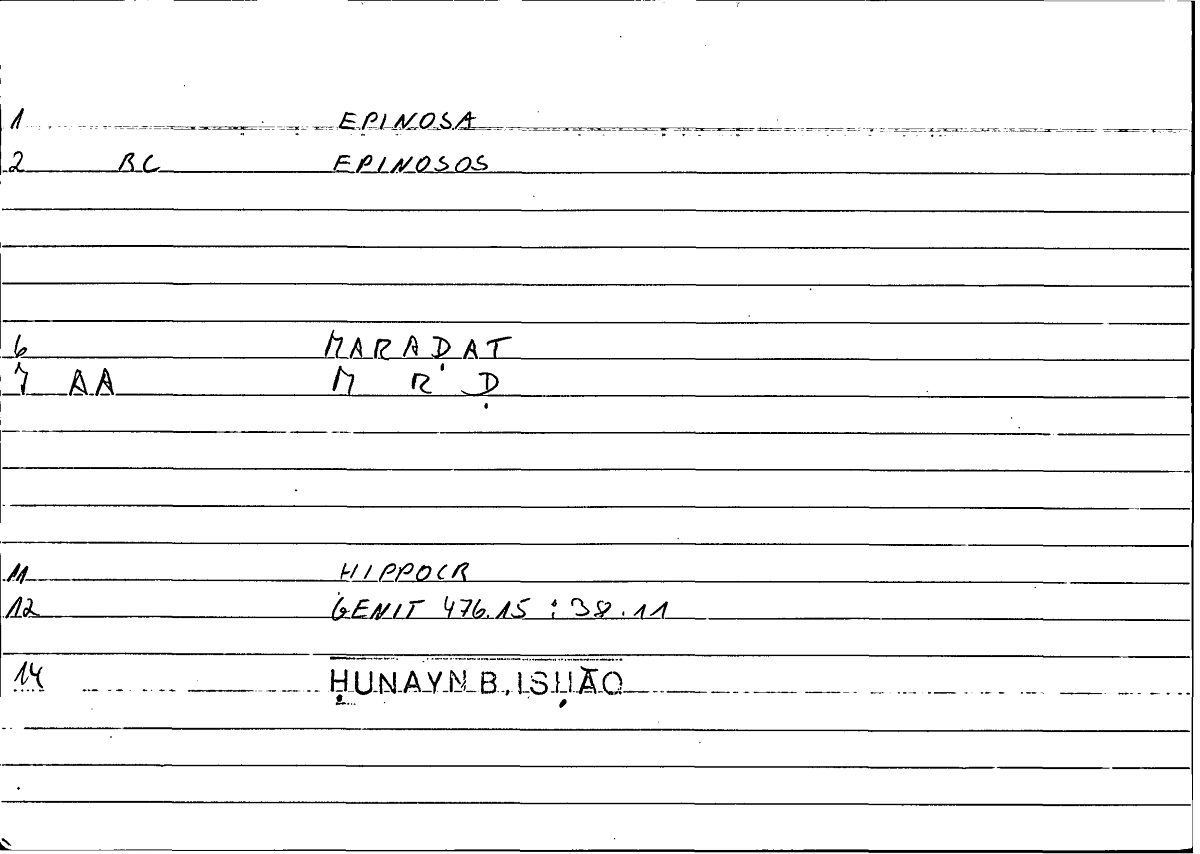 1 EPINOSA
2 BC EPINOSOS
6 MARAḌAT
7 AA M R Ḍ
11 HIPPOCR
12 GENIT 476.15 : 38.11
14 ḤUNAYN B. ISḤĀQ